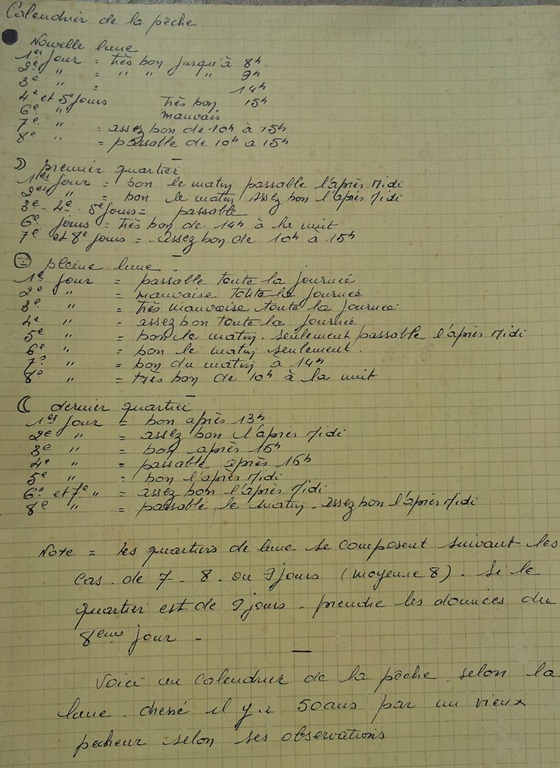 Calendrier de la pêche
Nouvelle lune
1er jour = très bon jusqu'à 8h.
2e " = " " " 9h
3e " = 14h
4e et 5e jours très bon 15h
6e " mauvais
7e " = assez bon de 10h à 15h
8e " = passable de 10h a 15h
premier quartier
1er jour = bon le matin passable l'après Midi
2e " = bon le matin assez bon l'après Midi
3e - 4e - 5e jours = passable
6e jours = très bon de 14h à la nuit
7e et 8e jours = assez bon de 10h à 15h
pleine lune -
1er jour = passable toute la journée
2e " = mauvaise toute la journée
3e " = très mauvaise toute la journée
4e " = assez bon toute la journée
5e " = bon le matin seulement passable l'après Midi
6e " = bon le matin seulement.
7e " = bon du matin a 14h
8e " = très bon de 10h à la nuit
dernier quartier
1er jour = bon après 13h
2e " = assez bon l'après Midi
3e " = bon après 15h
4e " = passable après 16h
5e " = bon l'après Midi
6e et 7e " = assez bon l'après Midi
8e " = passable le matin - assez bon l'après Midi
Note = les quartiers de lune se composent suivant les
cas - de 7 - 8 - ou 9 jours (moyenne 8). Si le
quartier est de 9 jours - prendre les données du
8eme jour -
Voici un calendrier de la pêche selon la
lune dressé il y a 50 ans par un vieux
pecheur selon ses observations